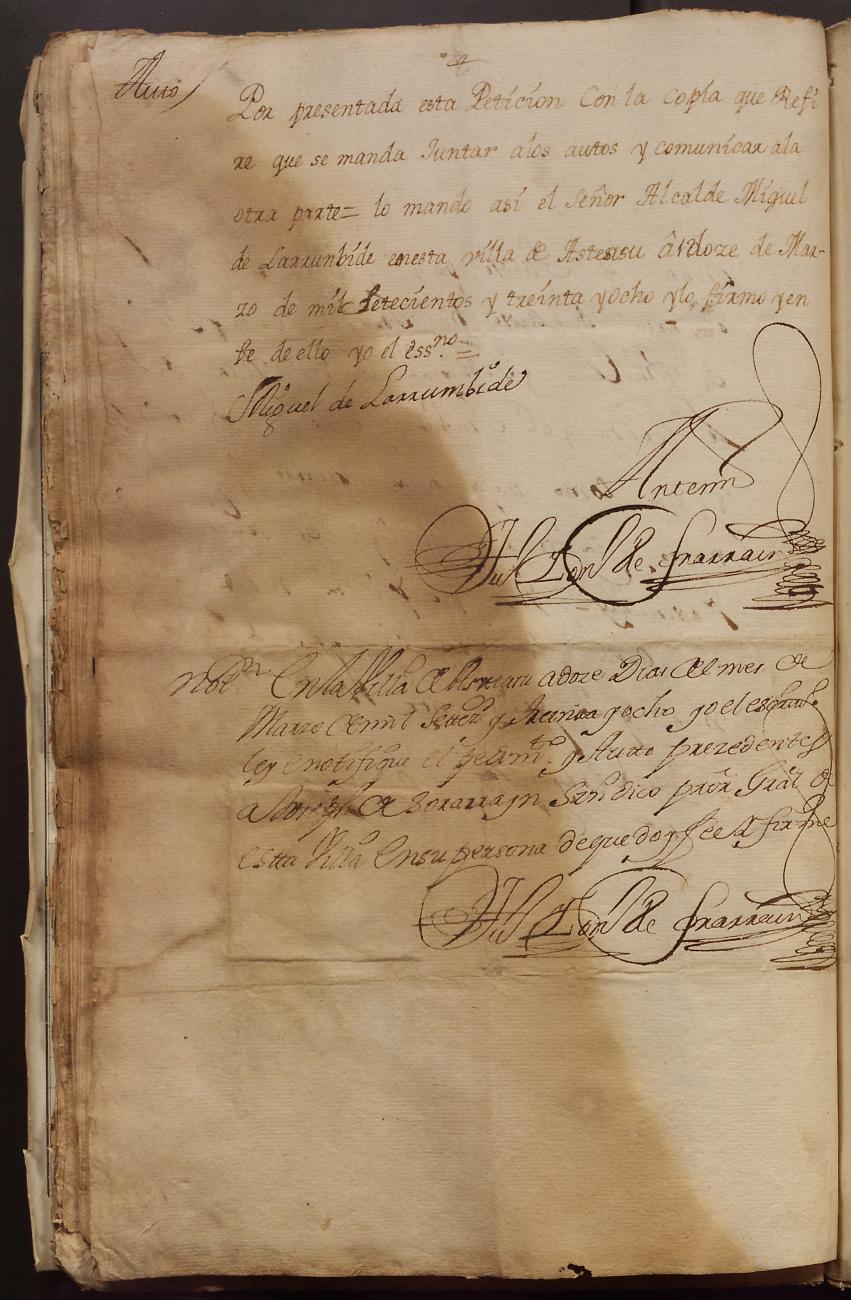 Auto
Por presentada esta Peticion Con la copia que Refi
re que se manda Juntar alos autos y comunicar ala
otra parte= lo mando asi el señor Alcalde Miguel
de Larrunbide enesta villa de Asteasu â doze de Mar-
zo de mil setecientos y treinta yocho ylo firmo yen
fe de ello yo el ess.no =
Miguel de Larrumbide
Antemi
de
nott.n En la Villa de Asteasu adoze Dias del mes de
Marzo de mil Settez.s y treinta yocho yo el
ley enotifique el pedim.to y Autto prezedentes
a de Sorarrayn Sindico prör Gräl de
estta Villa Ensu persona deque doy fee y firme
de